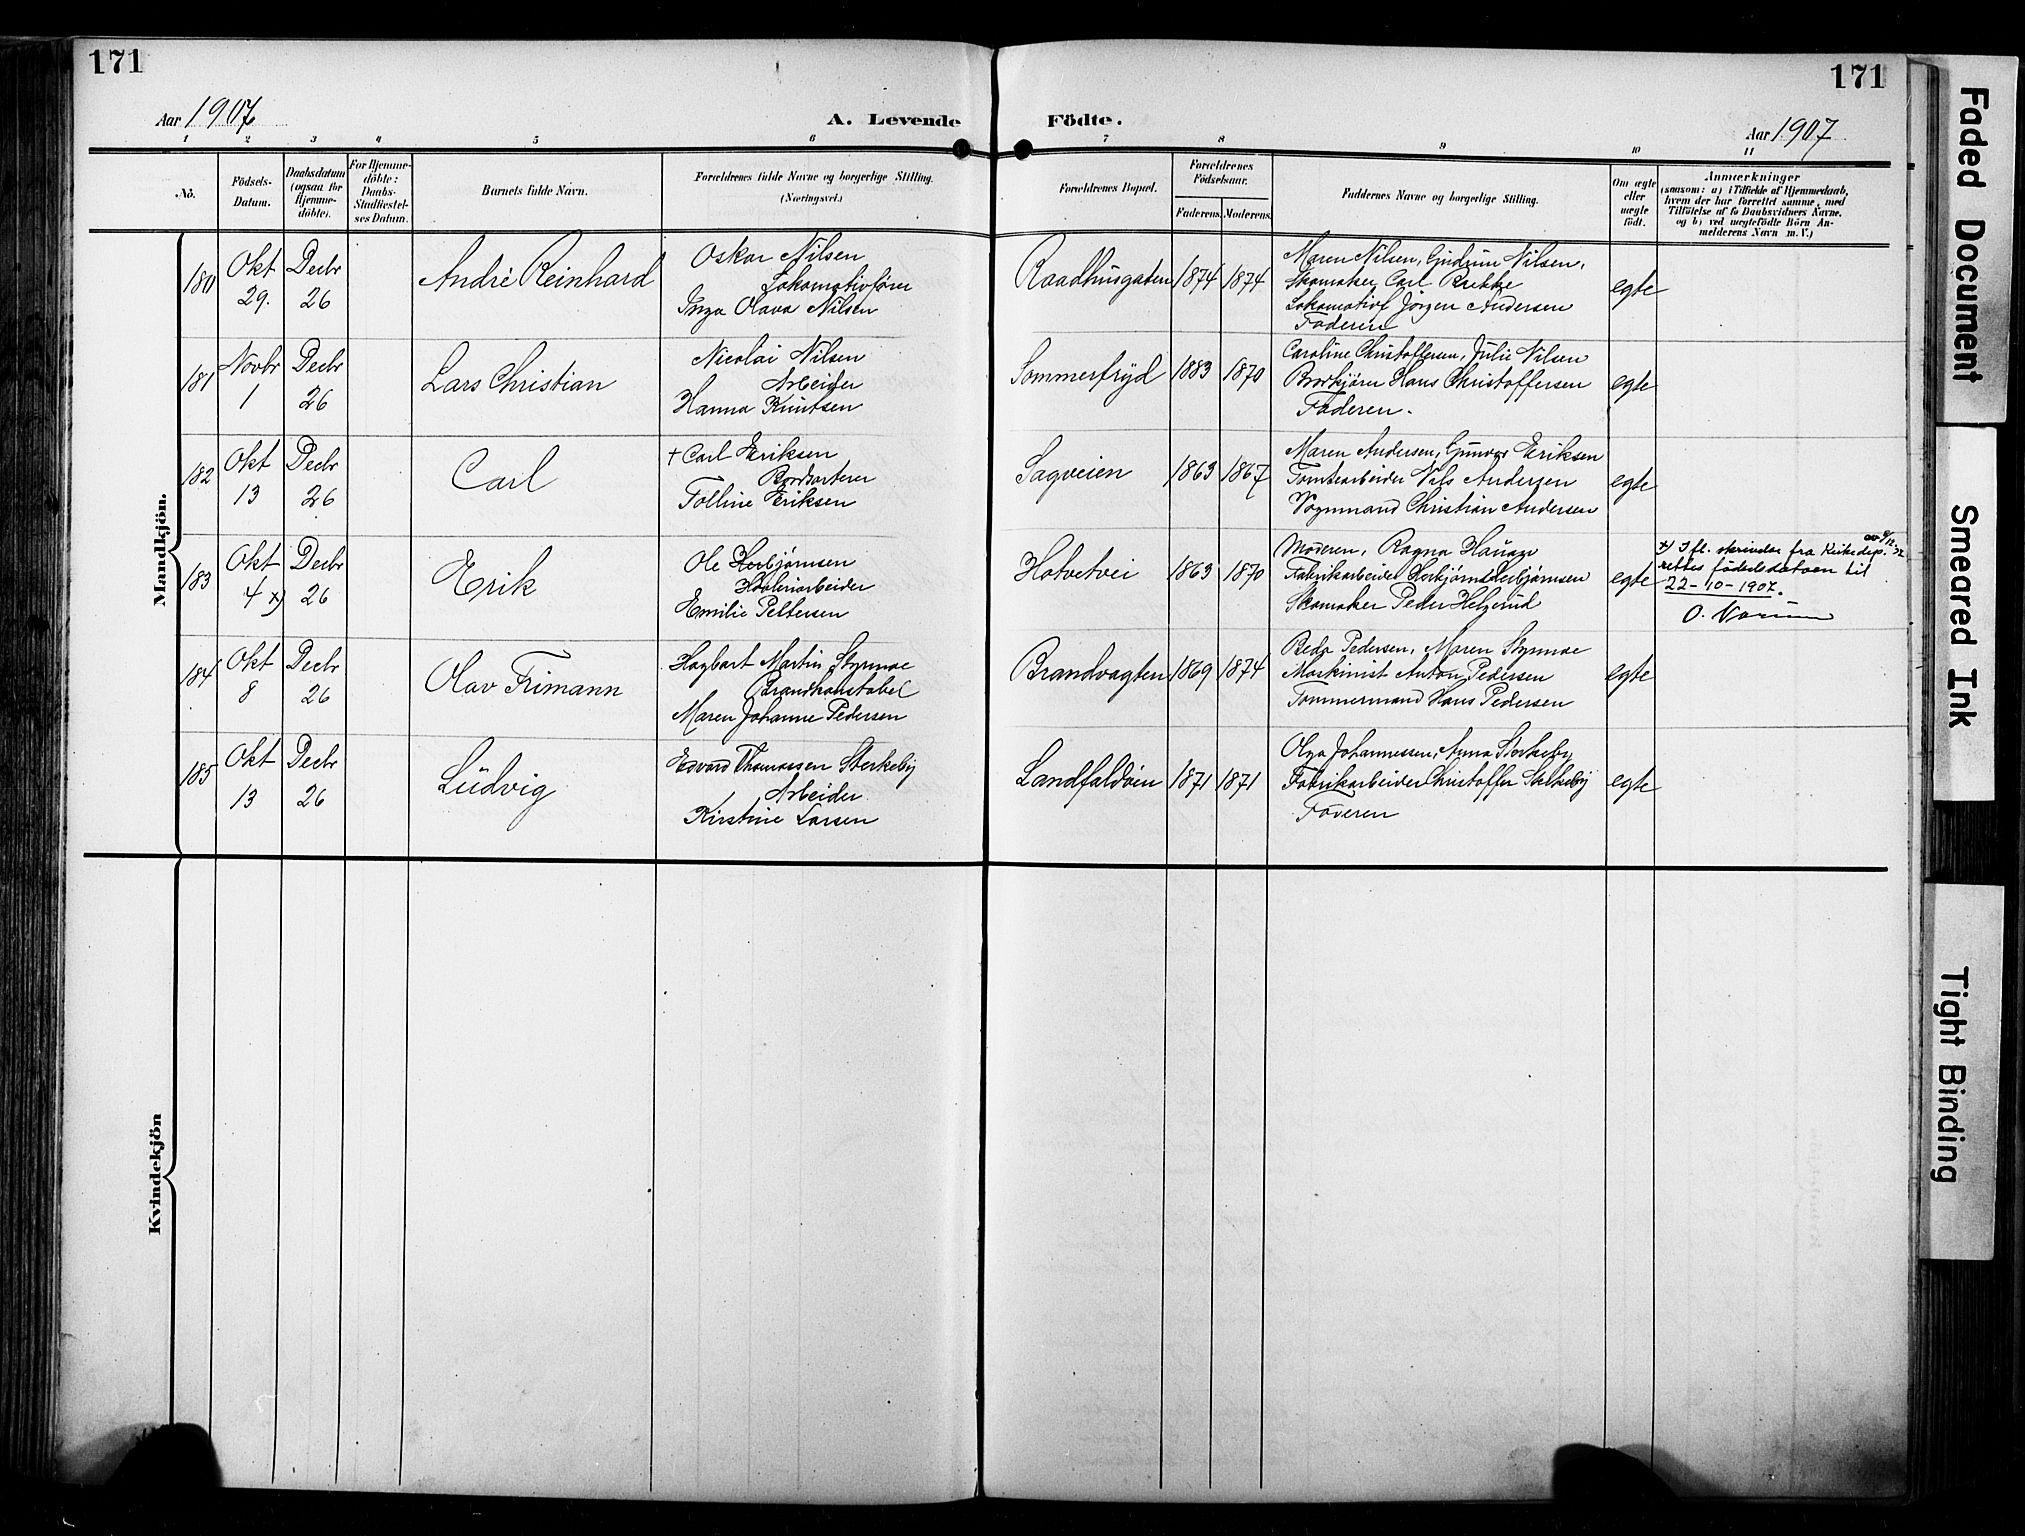 171
171
Aar 1907
A. Levende Födte.
Aar 1907
1 2 3 4 5 6 7 8 9 10 11
No.
Födsels-
Datum.
Daabsdatum
(ogsaa for
Hjemme-
döbte).
For Hjemme-
döbte:
Daabs-
Stadfæstel-
ses Datum.
Barnets fulde Navn.
Forældrenes fulde Navne og borgerlige Stilling.
(Næringsvei.)
Forældrenes Bopæl.
Forældrenes
Födselsaar.
Faderens. Moderens.
Faddernes Navne og borgerlige Stilling.
Om ægte
eller
uægte
födt.
Anmærkninger
(saasom: a) i Tilfælde af Hjemmedaab,
hvem der har forrettet samme, med
Tilföielse af to Daabsvidners Navne.
og b) ved uægtefödte Börn An-
melderens Navn m. V.)
Mandkjön.
180
Okt
29.
Decbr
26
André Reinhard
Oskar Nilsen
Lokomotivfører
Inga Olava Nilsen
Raadhusgaden
1874
1874
Maren Nilsen, Gudrun Nilsen,
Skomaker Carl
Lokomotivf Jørgen Andersen
Faderen
egte
181
Novbr
1
Decbr
26
Lars Christian
Nicolai Nilsen
Arbeider
Hanna Knutsen
Sommerfryd
1883
1870
Caroline Christoffersen, Julie Nilsen
Hans Christoffersen
Faderen.
egte
182
Okt
13
Decbr
26
Carl
+ Carl Eriksen
Bordsorterer
Tolline Eriksen
Sagveien
1863
1867
Maren Andersen, Gunvor Eriksen
Tomtearbeider Nils Andersen
Vognmand Christian Andersen
egte
183
Okt
4 x)
Decbr
26
Erik
Ole Herbjørnsen
Emilie Pettersen
Hotvetvei
1863
1870
Moderen, Ragna Hauge
Fabrikarbeider Herbjørn Herbjørnsen
Skomaker Peder Helgerud
egte
x) I fl. skrivelse fra Kirkedep. av 9/12-32
rettes fødselsdatoen til
22-10-1907.
184
Okt
8
Decbr
26
Olav Frimann
Hagbart Martin
Brandkonstabel
Maren Johanne Pedersen
Brandvagten
1869
1874
Beda Pedersen, Maren
Maskinist Anton Pedersen
Tømmermand Hans Pedersen
egte
185
Okt
13
Decbr
26
Ludvig
Edvard Thomassen Sterkeby
Arbeider
Kirstine Larsen
Landfaldøien
1871
1871
Olga Johannessen, Anna Sterkeby
Fabrikarbeider Christoffer Sterkeby
Faderen
egte
Kvindekjön
Faded Document
Smeared Ink
Tight Binding